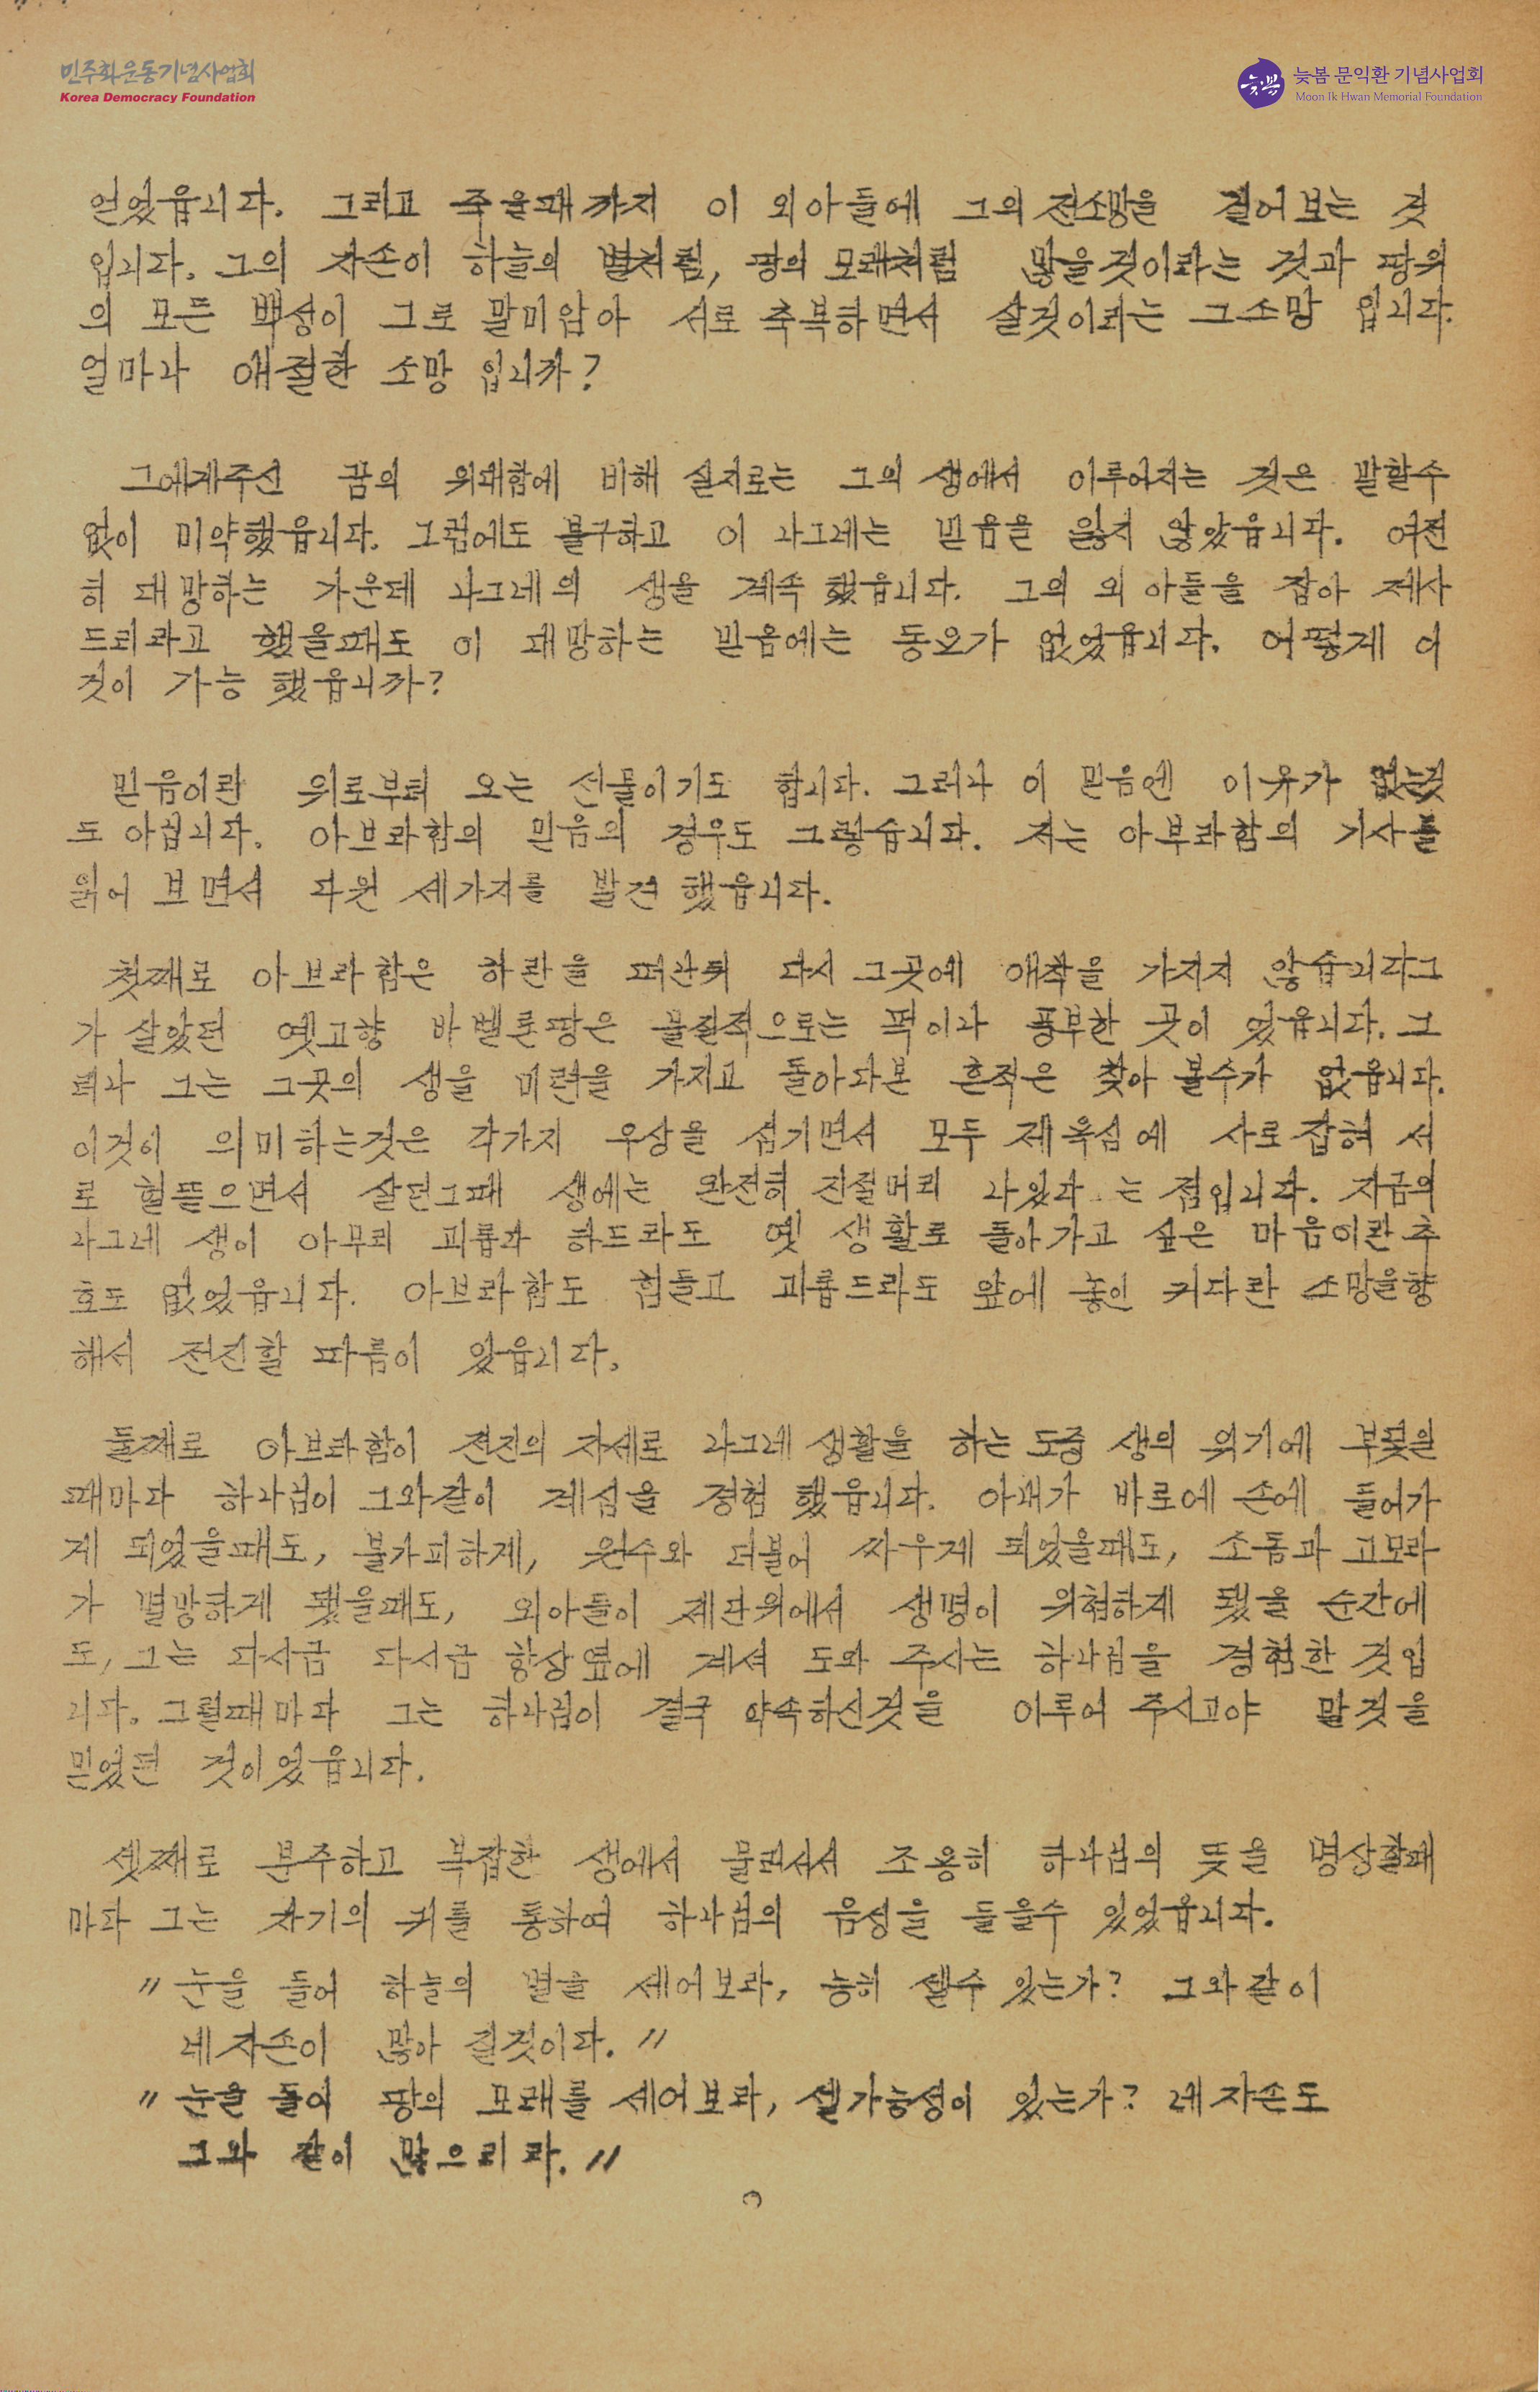 민주화운동기념사업회
Korea Democracy Foundation
늦봄
늦봄 문익환 기념사업회
Moon Ik Hwan Memorial Foundation
얻었읍니다. 그리고 죽을때 까지 이 외아들에 그의 전소망을 걸어 보는 것
입니다. 그의 자손이 하늘의 별처럼, 땅의 모래처럼 많을것이라는 것과 땅위
의 모든 백성이 그로 말미암아 서로 축복하면서 살것이라는 그소망 입니다.
얼마나 애절한 소망 입니까?
그에게주신 꿈의 위대함에 비해 실지로는 그의 생에서 이루어지는 것은 말할수
없이 미약했읍니다. 그럼에도 불구하고 이 나그네는 믿음을 잃지 않았읍니다. 여전
히 대망하는 가운데 나그네의 생을 계속 했읍니다. 그의 외 아들을 잡아 제사
드리라고 했을때도 이 대망하는 믿음에는 동요가 없었읍니다. 어떻게 이
것이 가능 했읍니까?
믿음이란 위로부터 오는 선물이기도 합니다. 그러나 이 믿음엔 이유가 없는것
도 아닙니다. 아브라함의 믿음의 경우도 그렇습니다. 저는 아부라함의 기사를
읽어 보면서 다원 세가지를 발견 했읍니다.
첫째로 아브라함은 하란을 떠난뒤 다시 그곳에 애착을 가지지 않습니다그
가 살았던 옛고향 바벨론땅은 물질적으로는 퍽이나 풍부한 곳이 었읍니다. 그
러나 그는 그곳의 생을 미련을 가지고 돌아다본 흔적은 찾아 볼수가 없읍니다.
이것이 의미하는것은 각가지 우상을 섬기면서 모두 제욕심에 사로잡혀 서
로 헐뜯으면서 살던그때 생에는 완전히 진절머리 나있다 는 점입니다. 지금의
나그네 생이 아무리 괴롭다 하드라도 옛 생활로 돌아가고 싶은 마음이란추
호도 없었읍니다. 아브라함도 힘들고 괴롭드라도 앞에 놓인 커다란 소망을향
해서 전진할 따름이 었읍니다.
둘째로 아브라함이 전진의 자세로 나그네 생활을 하는 도중 생의 위기에 부딪칠
때마다 하나님이 그와같이 계심을 경험 했읍니다. 아내가 바로에 손에 들어가
게 되었을때도, 불가피하게, 원수와 더불어 싸우게 되었을때도, 소돔과 고모라
가 멸망하게 됐을때도, 외아들이 제단위에서 생명이 위험하게 됐을 순간에
도, 그는 다시금 다시금 항상옆에 계셔 도와 주시는 하나님을 경험한 것입
니다. 그럴때마다 그는 하나님이 결국 약속하신것을 이루어 주시고야 말것을
믿었던 것이었읍니다.
셋째로 분주하고 복잡한 생에서 물러서서 조용히 하나님의 뜻을 명상할때
마다 그는 자기의 귀를 통하여 하나님의 음성을 들을수 있었읍니다.
" 눈을 들어 하늘의 별을 세어보라, 능히 셀수 있는가? 그와같이
네자손이 많아 질것이다. "
" 눈을 들어 땅의 모래를 세어보라, 셀가능성이 있는가? 네 자손도
그와 같이 많으리라. "